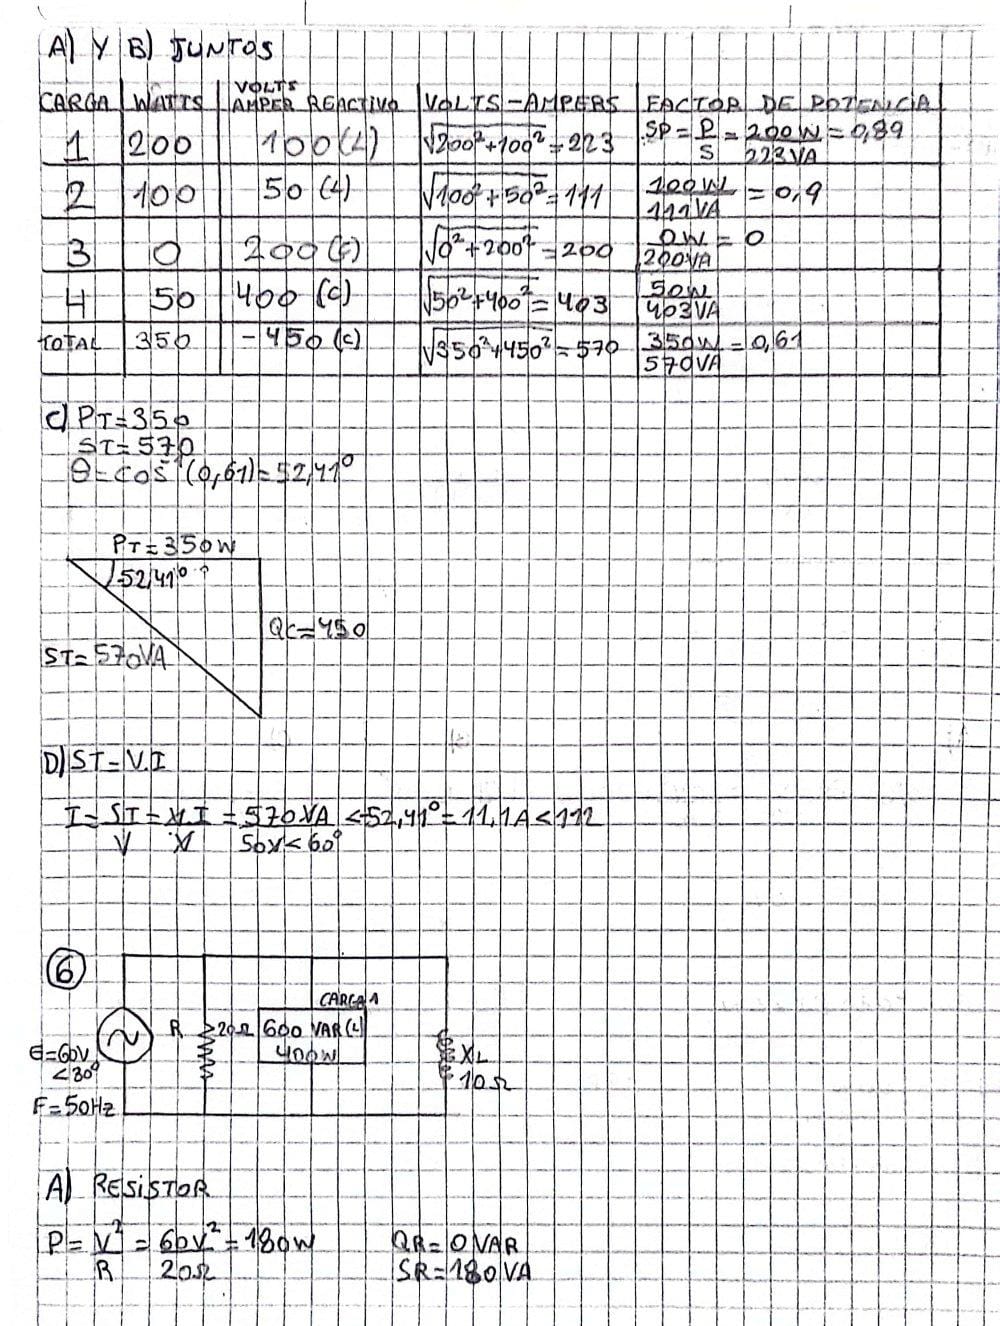 A) Y B) JUNTOS
CARGA WATTS VOLTS AMPER REACTIVO VOLTS-AMPERS FACTOR DE POTENCIA
1 200 100(L) √200²+100² = 223 SP = P/S = 200W/223VA = 0,89
2 100 50 (L) √100²+50² = 111 100W/111VA = 0,9
3 0 200 (C) √0²+200² = 200 0W/200VA = 0
4 50 400 (C) √50²+400² = 403 50W/403VA
TOTAL 350 -450 (C) √350²+450² = 570 350W/570VA = 0,61
C) PT = 350
ST = 570
θ = COS⁻¹(0,61) = 52,41°
PT = 350W
52,41°
QC = 450
ST = 570VA
D) ST = V.I
I = ST/V = V.I/V = 570VA/50V<60° <-52,41° = 11,1A<112
6
CARGA 1
R 20Ω 600 VAR(L)
400W
E=60V
<30°
F=50Hz
XL
10Ω
A) RESISTOR
P = V²/R = 60V²/20Ω = 180W QR = 0 VAR
SR = 180VA